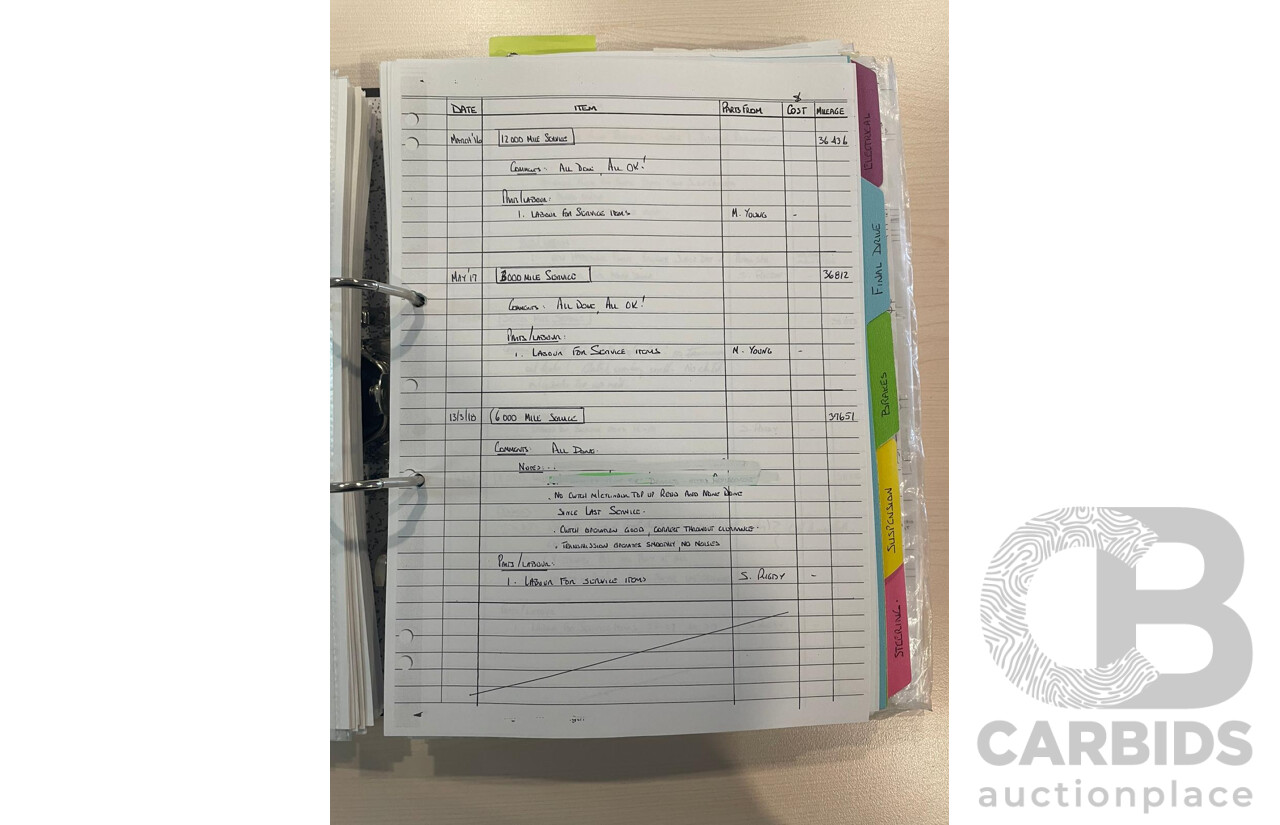 DATE ITEM PARTS FROM $ COST MILEAGE
MARCH '16 12000 MILE SERVICE 36436
COMMENTS: ALL DONE, ALL OK!
PARTS/LABOUR:
1. LABOUR FOR SERVICE ITEMS M. YOUNG -
MAY '17 3000 MILE SERVICE 36812
COMMENTS: ALL DONE, ALL OK!
PARTS/LABOUR:
1. LABOUR FOR SERVICE ITEMS M. YOUNG -
13/3/18 6000 MILE SERVICE 37651
COMMENTS: ALL DONE.
NOTES:
. NO CLUTCH M/CYLINDER TOP UP REQD AND NONE DONE
SINCE LAST SERVICE.
. CLUTCH OPERATION GOOD, CORRECT THROWOUT CLEARANCE.
. TRANSMISSION OPERATES SMOOTHLY, NO NOISES
PARTS/LABOUR:
1. LABOUR FOR SERVICE ITEMS S. RIGBY -
ELECTRICAL
FINAL DRIVE
BRAKES
SUSPENSION
STEERING.
CB
CARBIDS
auctionplace